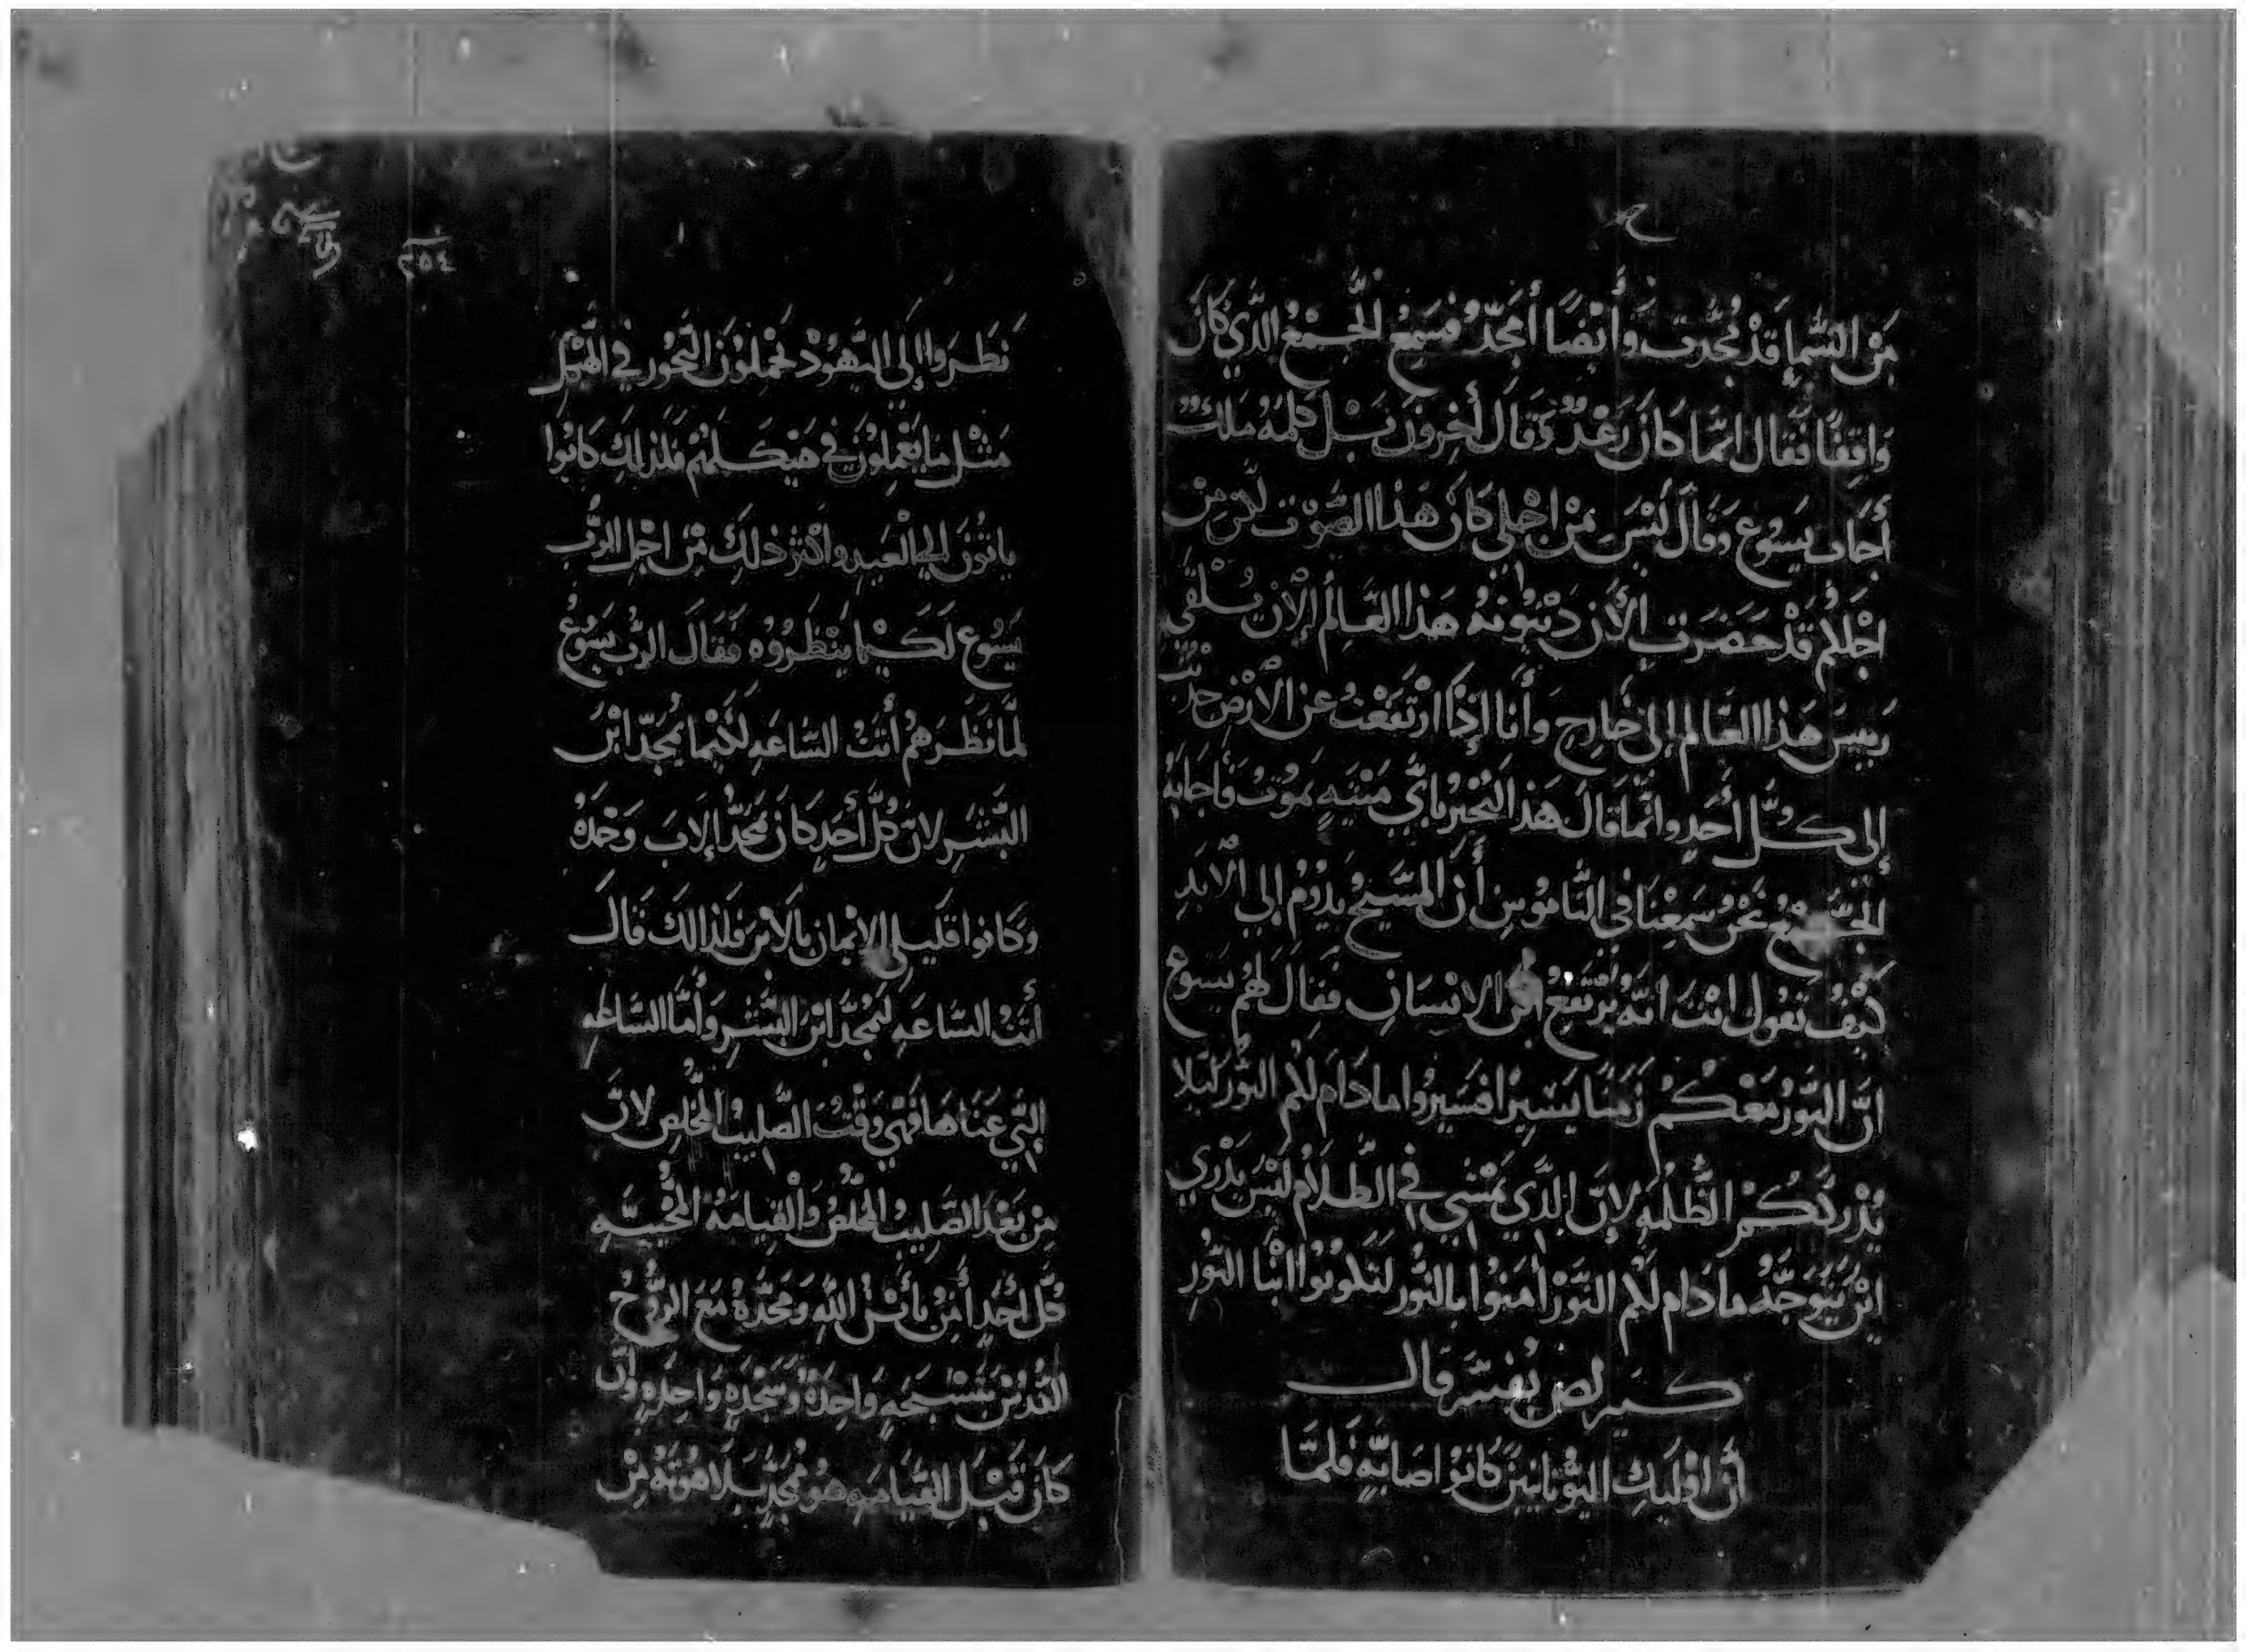 مِنَ السَّمإِ قَدْ مُجِّدت وَأَيْضًا أُمَجِّدُ فَسَمِعَ الجَمْعُ الَّذي كَانَ
وَاقِفًا فَقَال انَّمَا كَانَ رَعْدٌ وَقَالَ أَخِرون بَل كَلمَهُ مَلَكٌ
أَجَابَ يَسوُع وَقَالَ لَيْسَ مِنْ اجلي كَانَ هَذا الصَّوْت لَكن مِن
اجْلِكُم قَدْ حَضَرَتِ الأَن دَيْنوُنَهُ هَذا العَالمِ الأَن يُلْقَي
رَييسَ هَذا العَالمِ إِلى خَارِج وأَنا إِذَا ارْتَفَعْتُ عَن الأَرْضِ جدبْتُ
إِلى كُلَّ أَحَدٍ وانَّما قَالَ هَذا ليُخْبِر بايِّ مَيْتَهٍ يَموُت فأَجَابَهُ
الجَمْعُ نَحْنُ سَمِعْنَا فِي النَّاموُسِ أَنَّ المَسيَّح يَدوُمُ إِلي الأَبَدِ
كَيْفَ تَقوُل انْتَ انَّهُ يُرْتَفِعُ ابْن الانْسَانِ فقَالَ لَهُم يَسوُع
انَّ النوُّرَ مَعَكُمْ زَمَنًا يَسيِرًا فَسيِروُا مادَام لَكُم النوُّر لَيلا
يُدْرِكَكُمْ الظُّلمَهِ لإِنَّ الَّذِي يَمْشي فِي الظَّلاَم لَيْسَ يَدْري
ايْنَ يَتَوَجَّهُ مادَام لَكُم النوُّرْ أَمنوُا بالنوُّر لتَكوُنوُا ابْنَا النوُّرِ
كيرلص يُفسَّر قال
أَنَّ اوُليَكِ اليوُنَّانيين كَانوُا صَابيّهٍ فَلمَّا
نَظَروَا إِلَي اليَهوُدْ يَحْملوُنَ البَخوُر فِي الهَيْكلِ
مَثْل مَا يَعْملوُن فِي هَيْكَلهُم فَلذلكَ كَانوُا
ياتوُنَ إِلي العيدِ واكْثرَ ذلكَ مِن اجْلِ الرَّب
يَسُوع لَكَيْما يَنْظروُهِ فَقَالَ الرَّب يَسوُعُ
لمَّا نَظَرَهُم أَتَتْ السَّاعَهِ لكَيْما يُمَجَّد ابْنَ
البَشَرِ لانَّ كُلَّ أَحَدٍ كَانَ يُمَجِّد الاَبَ وَحْدَهُ
وَكَانوا قَليلي الايْمان بالاَبْن فَلذالكَ قَالَ
أَتَتْ السَّاعَهِ ليُمَجَّد ابْنَ البَشَرِ وَأَمَّا السَّاعَهِ
الَّتِي عَنَاهَا فَهِي وَقْتُ الصَّليبُ المُخَلص لانَّ
مِن بَعْد الصَّليبُ المُخَلصُ وَالْقيامَهُ المُحْييَّهِ
كُلَّ احَدٍ أَمِنَ بأَبْن اللَّهِ وَمَجَّدَهُ مَعَ الروُّحُ
القُدُسْ بتَسْبحَهٍ وَاحِدَهْ وَسَجْدَهٍ وَاحِدَهٍ وَانَّ
كَانَ قَبْلَ القيَامَهِ هوُ مُمَجَّد بلاَهوُتَهُ مِنْ